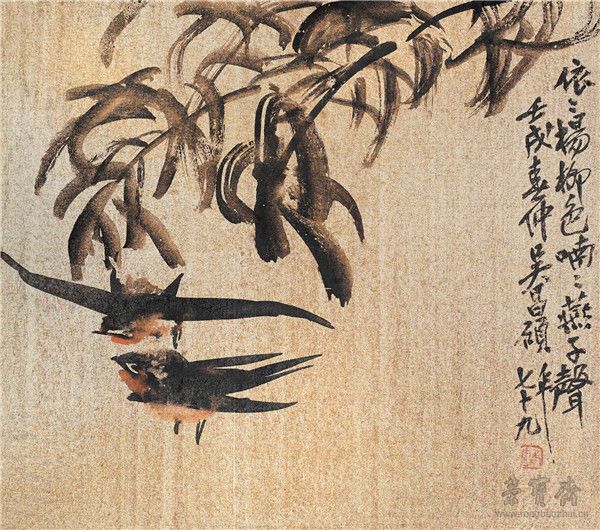 依〻楊柳色喃〻燕子聲
壬戌春仲吳昌碩年
七十九
榮寶齋
www.rongbaozhai.cn